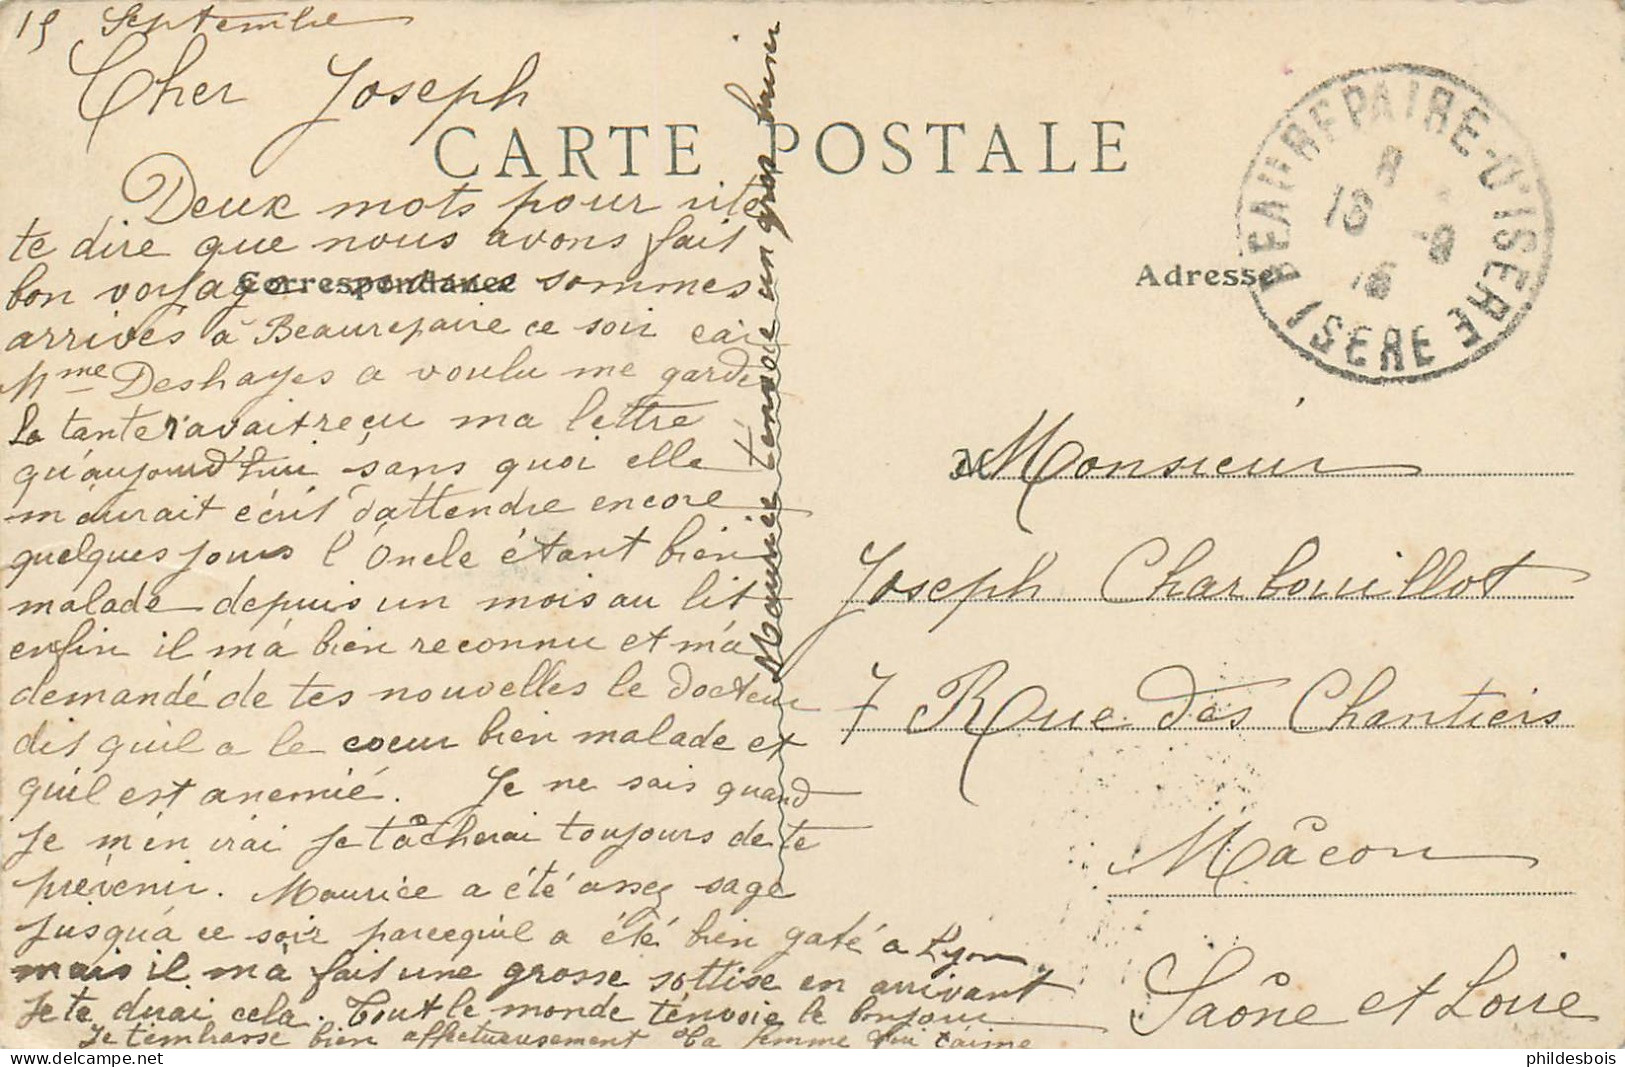 15 Septembre
Cher Joseph
CARTE POSTALE
Deux mots pour vite
te dire que nous avons fait
bon voyage nous sommes
Correspondance
arrivés à Beaurepaire ce soir car
Mme Deshayes a voulu me garder
La tante avait reçu ma lettre
qu'aujourd'hui sans quoi elle
m'aurait écrit d'attendre encore
quelques jours l'Oncle étant bien
malade depuis un mois au lit
enfin il m'a bien reconnu et m'a
demandé de tes nouvelles le docteur
dit qu'il a le coeur bien malade et
qu'il est anemié. Je ne sais quand
Je m'en irai Je tâcherai toujours de te
prévenir. Maurice a été assez sage
Jusqu'à ce soir parcequ'il a été bien gaté a Lyon
mais il m'a fait une grosse sottise en arrivant
Je te dirai cela. Tout le monde t'envoie le bonjour
Je t'embrasse bien affectueusement Ta femme qui t'aime
Maurice t'envoie un gros mimi
Adresse
BEAUREPAIRE-D'ISERE
ISERE
Monsieur
Joseph Charbouillot
7 Rue des Chantiers
Mâcon
Saône et Loire
phildesbois